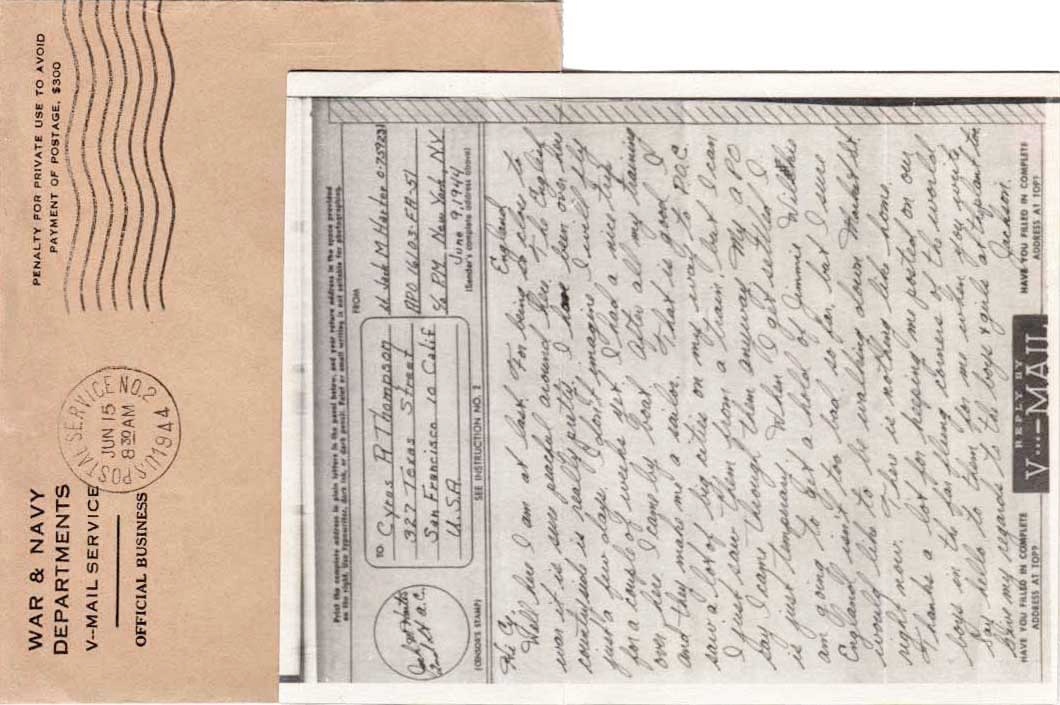 PENALTY FOR PRIVATE USE TO AVOID
PAYMENT OF POSTAGE, $300
U.S. POSTAL SERVICE NO. 2
JUN 15
8 30 AM
1944
WAR & NAVY
DEPARTMENTS
V--MAIL SERVICE
OFFICIAL BUSINESS
Print the complete address in plain letters in the panel below, and your return address in the space provided
on the right. Use typewriter, dark ink, or dark pencil. Faint or small writing is not suitable for photographing.
FROM
TO
Cyrus R Thompson
327 Texas Street
San Francisco 10 Calif
U.S.A
Lt Jack M Harker 0-759231
APO 16103-EA-51
c/o PM New York, NY
June 9, 1944
(Sender's complete address above)
(CENSOR'S STAMP)
SEE INSTRUCTION NO. 2
England
Hi Cy
Well here I am at last. For being so close to
war it is sure peaceful around here. The English
countryside is really pretty. I have been over here
just a few days & don't imagine I will fly
for a couple of weeks yet. I had a nice trip
over here. I came by boat. After all my training
and they make me a sailor. That is good. I
saw a lot of big cities on my way to P.O.E.
I just saw them from a train, but I can
say I came though them anyway. My PO
is just temporary. When I get set then I
am going to get a hold of Jimmie
England isn't too bad so far, but I sure
would like to be walking down
right now. There is nothing like home.
Thanks a lot for keeping me posted on our
boys on the far flung corners of the world
Say hello to them for me when you write
Give my regards to the boys & girls at
Jackson.
HAVE YOU FILLED IN COMPLETE
ADDRESS AT TOP?
REPLY BY
V---MAIL
HAVE YOU FILLED IN COMPLETE
ADDRESS AT TOP?